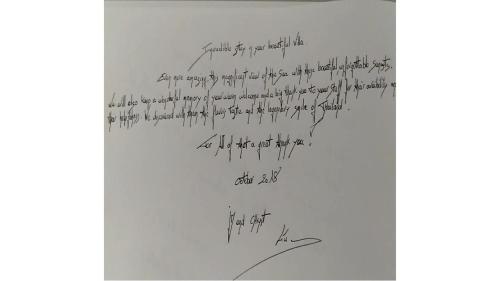 Incredible stay in your beautiful villa
Even more amazing this magnificent view of the sea with these beautiful unforgettable sunsets.
We will also keep a wonderful memory of your warm welcome and a big thank you to your staff for their availability and
their helpfulness. We discovered with them the flavors taste and the legendary smile of Thailand.
For All of that a great thank you!
october 2018
and